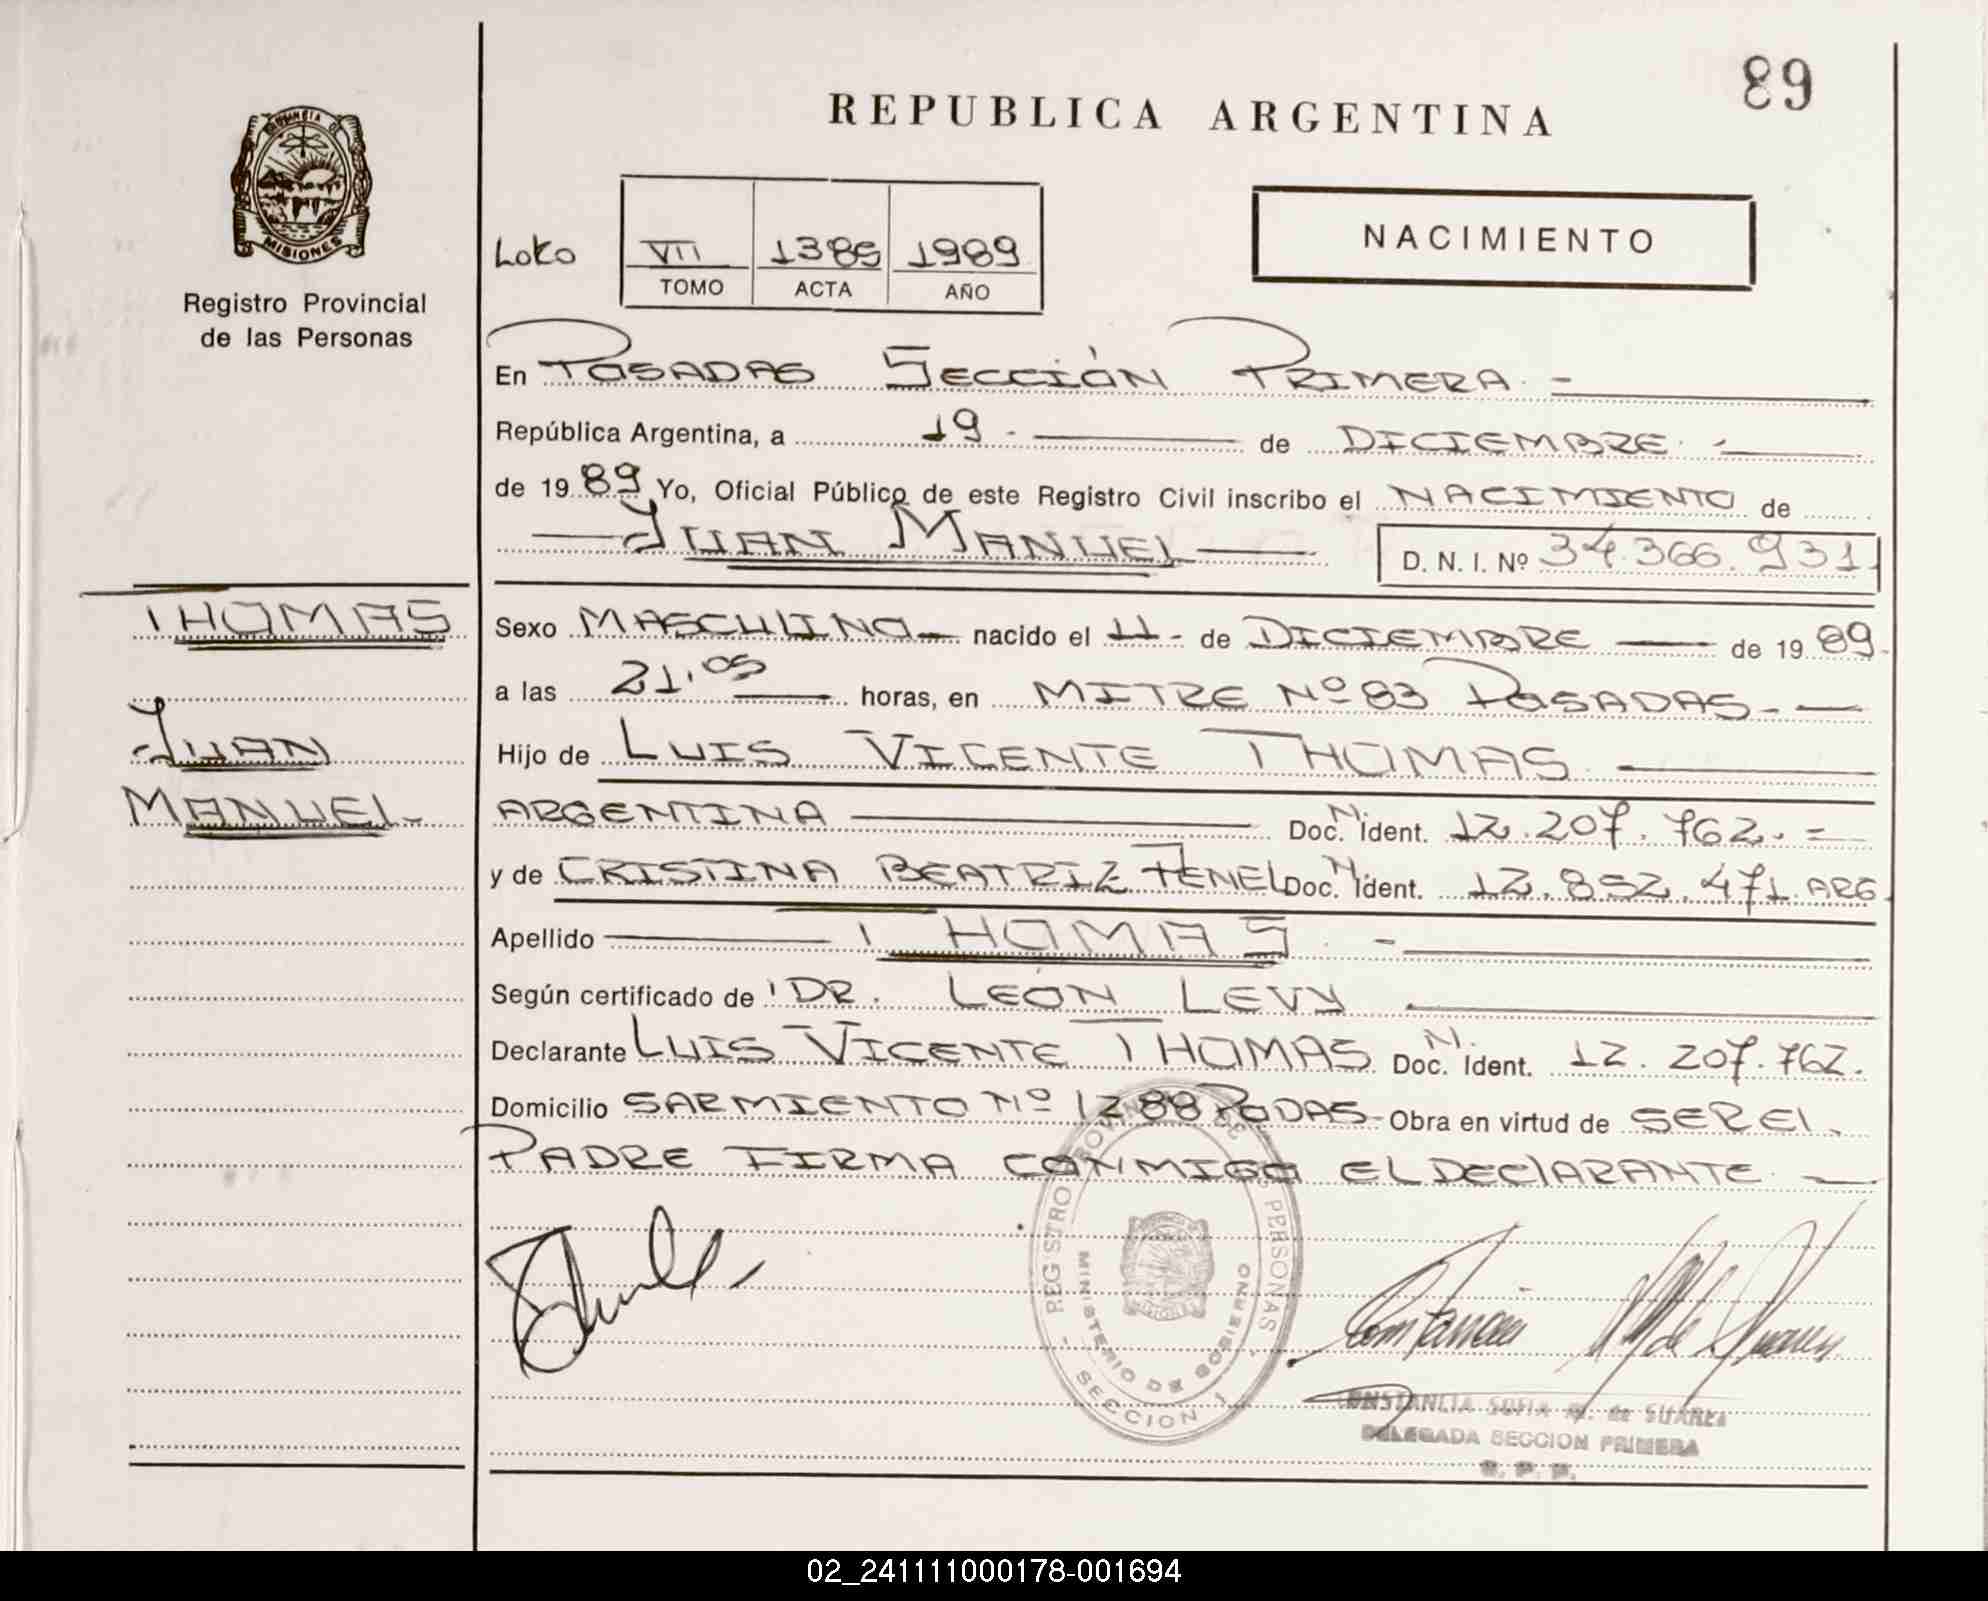 89
REPUBLICA ARGENTINA
PROVINCIA DE
MISIONES
Registro Provincial
de las Personas
NACIMIENTO
LOKO
VII 1385 1989
TOMO ACTA AÑO
En POSADAS SECCIÓN PRIMERA. -
República Argentina, a 19 - de DICIEMBRE. -
de 1989 Yo, Oficial Público de este Registro Civil inscribo el NACIMIENTO de
JUAN MANUEL D. N. I. Nº 34.366.931
THOMAS
JUAN
MANUEL-
Sexo MASCULINO nacido el 11- de DICIEMBRE de 1989.
a las 21,05 horas, en MITRE Nº 83 POSADAS.-
Hijo de LUIS VICENTE THOMAS
ARGENTINA Doc. N. Ident. 12.207.762. =
y de CRISTINA BEATRIZ FENEL Doc. N. Ident. 12.852.471. ARG.
Apellido THOMAS. -
Según certificado de DR. LEÓN LEVY
Declarante LUIS VICENTE THOMAS Doc. N. Ident. 12.207.762.
Domicilio SARMIENTO Nº 1288 PODAS- Obra en virtud de SER EL
PADRE FIRMA CONMIGO EL DECLARANTE.
REGISTRO PROVINCIAL DE LAS PERSONAS
MINISTERIO DE GOBIERNO
SECCION 1
Constancia M. de Suarez
CONSTANCIA SOFIA M. de SUAREZ
DELEGADA SECCION PRIMERA
R. P. P.
02_241111000178-001694